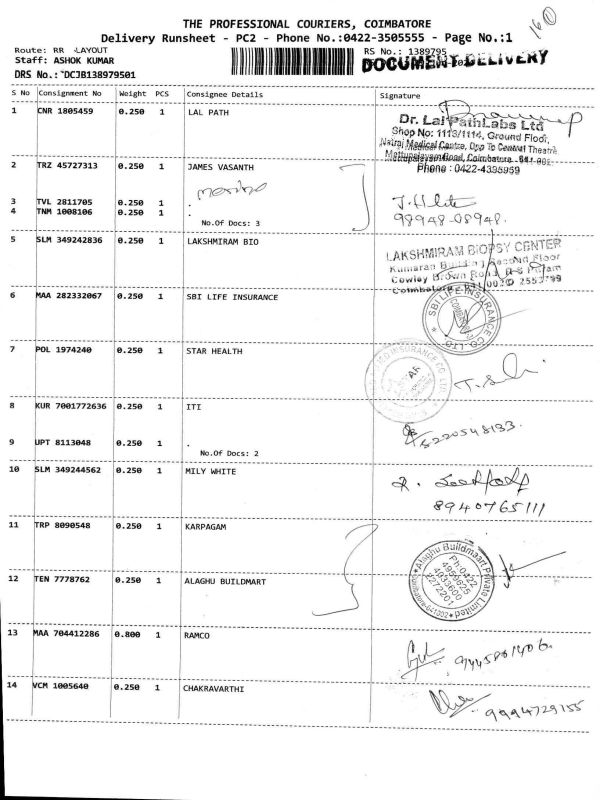 THE PROFESSIONAL COURIERS, COIMBATORE
Delivery Runsheet - PC2 - Phone No.:0422-3505555 - Page No.:1
160
Route: RR LAYOUT
RS No.: 1389795
Staff: ASHOK KUMAR
DOCUMENT DELIVERY
DRS No.: DCJB138979501
S No Consignment No Weight PCS Consignee Details Signature
1 CNR 1805459 0.250 1 LAL PATH
Dr. Lal PathLabs Ltd
Shop No: 1113/1114, Ground Floor,
Natraj Medical Centre, Opp To Central Theatre
Mettupalayam Road, Coimbatore - 641 002
Phone : 0422-4395959
2 TRZ 45727313 0.250 1 JAMES VASANTH
3 TVL 2811705 0.250 1 .
4 TNM 1008106 0.250 1 .
No.Of Docs: 3
98948-08948.
5 SLM 349242836 0.250 1 LAKSHMIRAM BIO
LAKSHMIRAM BIOPSY CENTER
Kumaran Building Second Floor
Cowley Brown Road, R S Puram
6 MAA 282332067 0.250 1 SBI LIFE INSURANCE
SBI LIFE INSURANCE CO. LTD.
7 POL 1974240 0.250 1 STAR HEALTH
INSURANCE CO. LTD.
8 KUR 7001772636 0.250 1 ITI
9 UPT 8113048 0.250 1 .
No.Of Docs: 2
10 SLM 349244562 0.250 1 MILY WHITE
8940765111
11 TRP 8090548 0.250 1 KARPAGAM
12 TEN 7778762 0.250 1 ALAGHU BUILDMART
Alaghu Buildmaart Private Limited
Ph:0422
4959625
4033600
2272201
13 MAA 704412286 0.800 1 RAMCO
14 VCM 1005640 0.250 1 CHAKRAVARTHI
9994729155